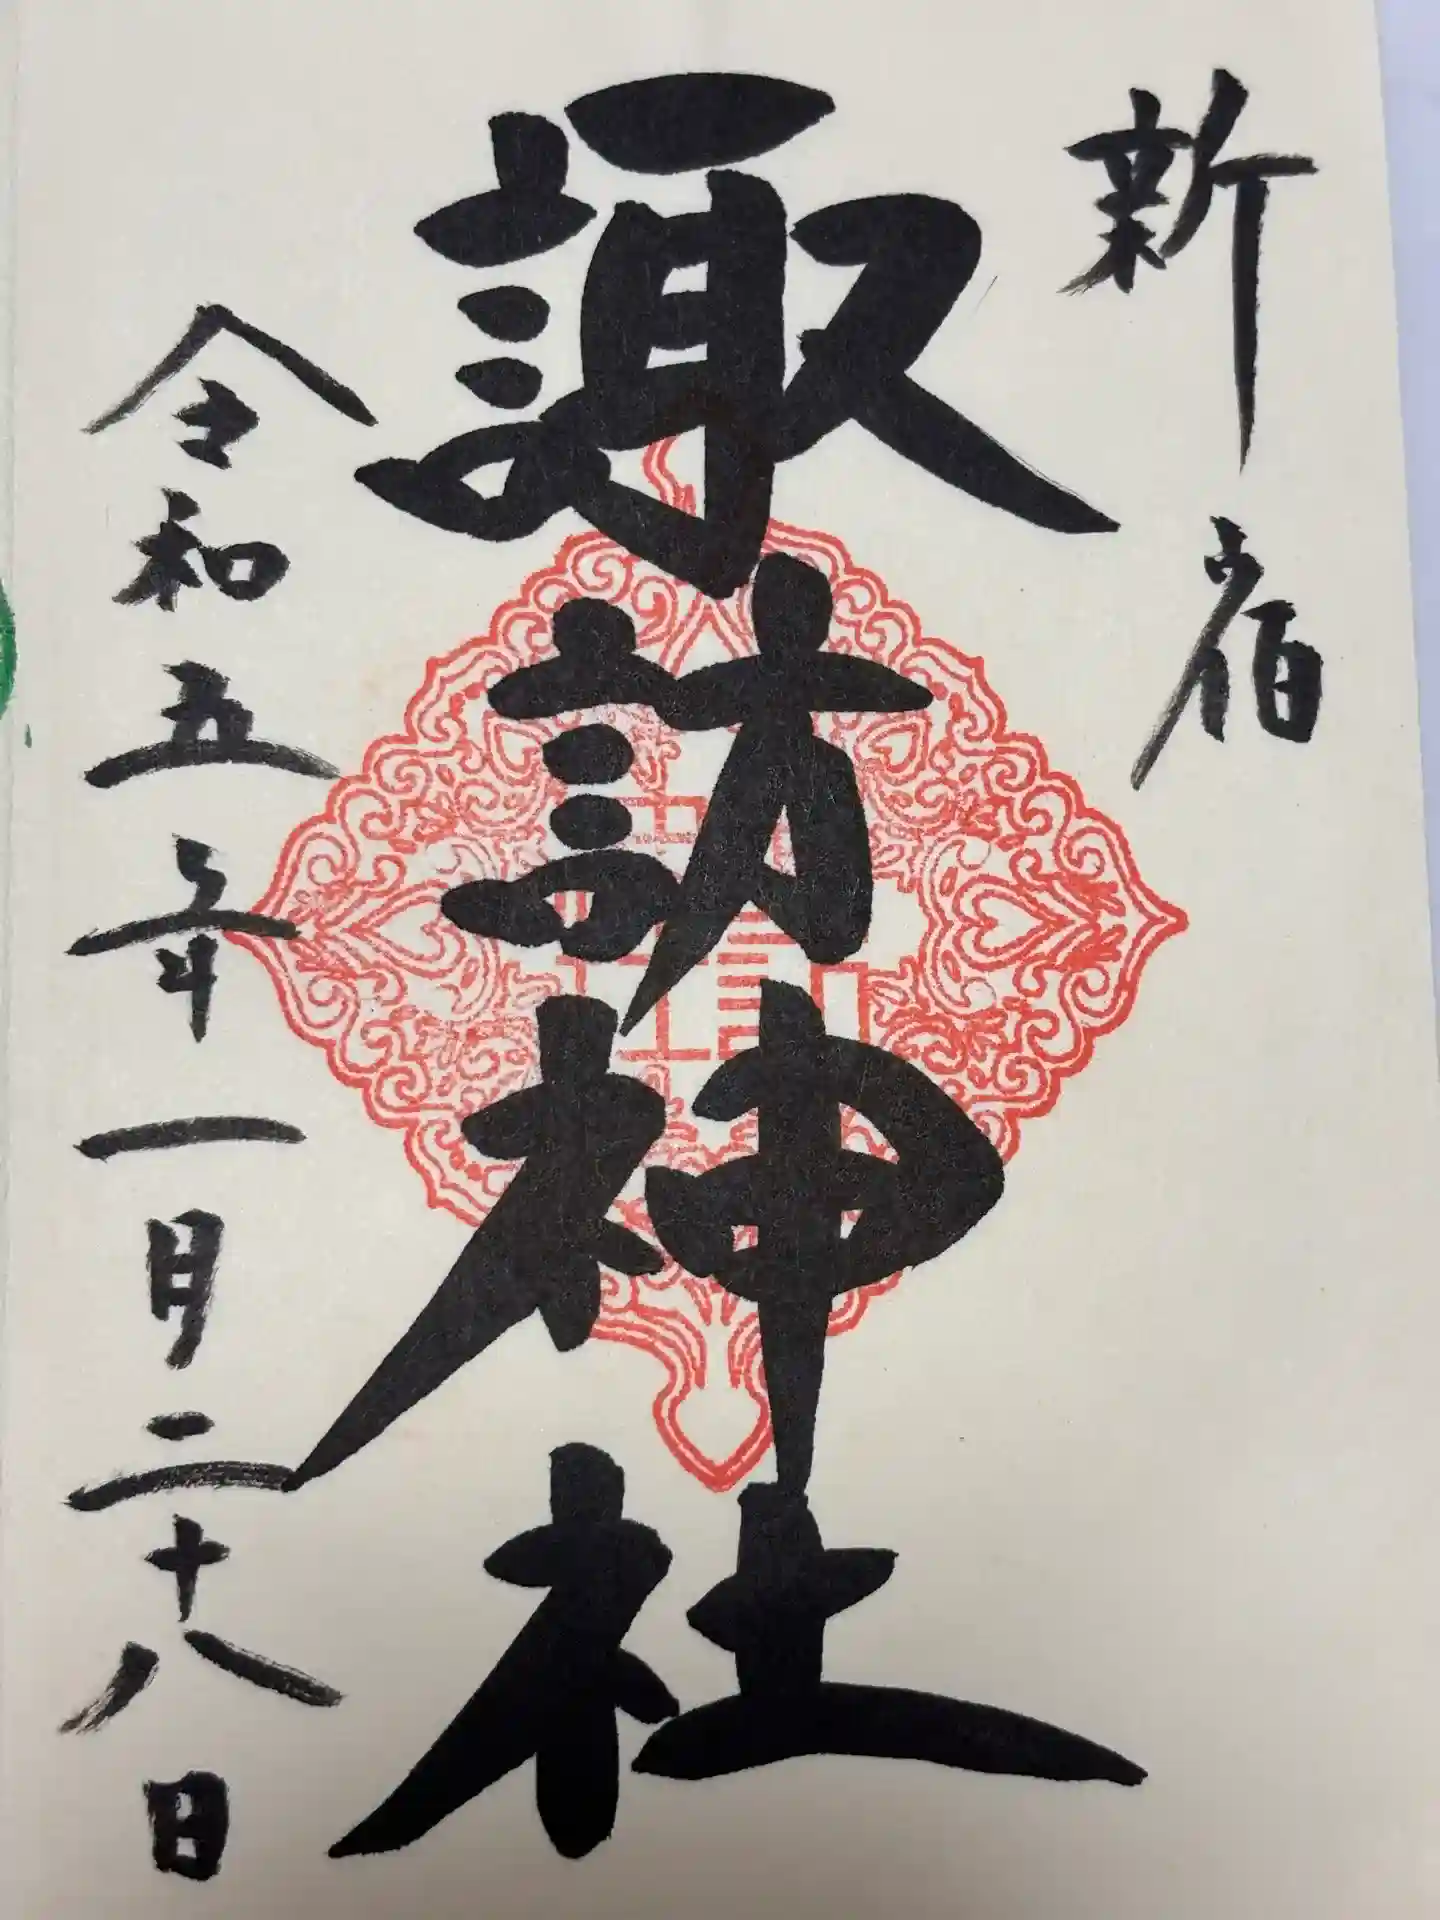 新宿
諏訪神社
令和五年一月二十八日